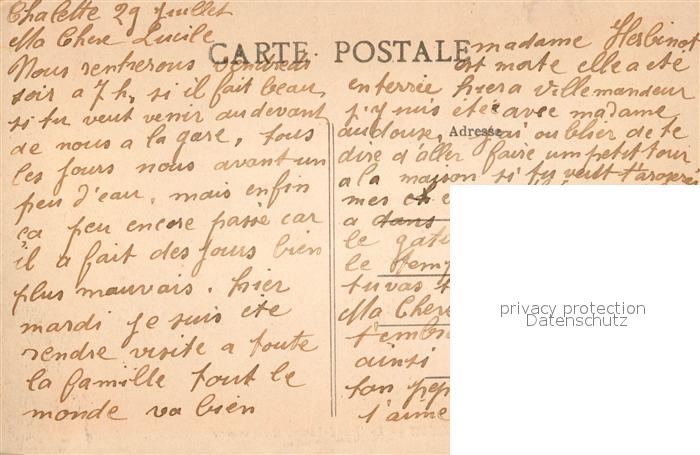 Chalette 29 juillet
Ma Chere Lucile
CARTE POSTALE
Nous rentrerons vendredi
soir a 7 h, si il fait beau
si tu veut venir audevant
de nous a la gare, tous
les jours nous avant un
peu d'eau, mais enfin
ça peu encore passé car
il a fait des jours bien
plus mauvais. hier
mardi je suis été
rendre visite a toute
la famille tout le
monde va bien
madame Herbinot
est morte elle a été
enterrée hier a villemandeur
j'y suis été avec madame
audoux, j'ai oublier de te
Adresse
dire d'aller faire un petit tour
a la maison si tu veut
mes
a dans
le
le
tu vas
Ma Chere
t'embr
ainsi
ton
t'aime
privacy protection
Datenschutz